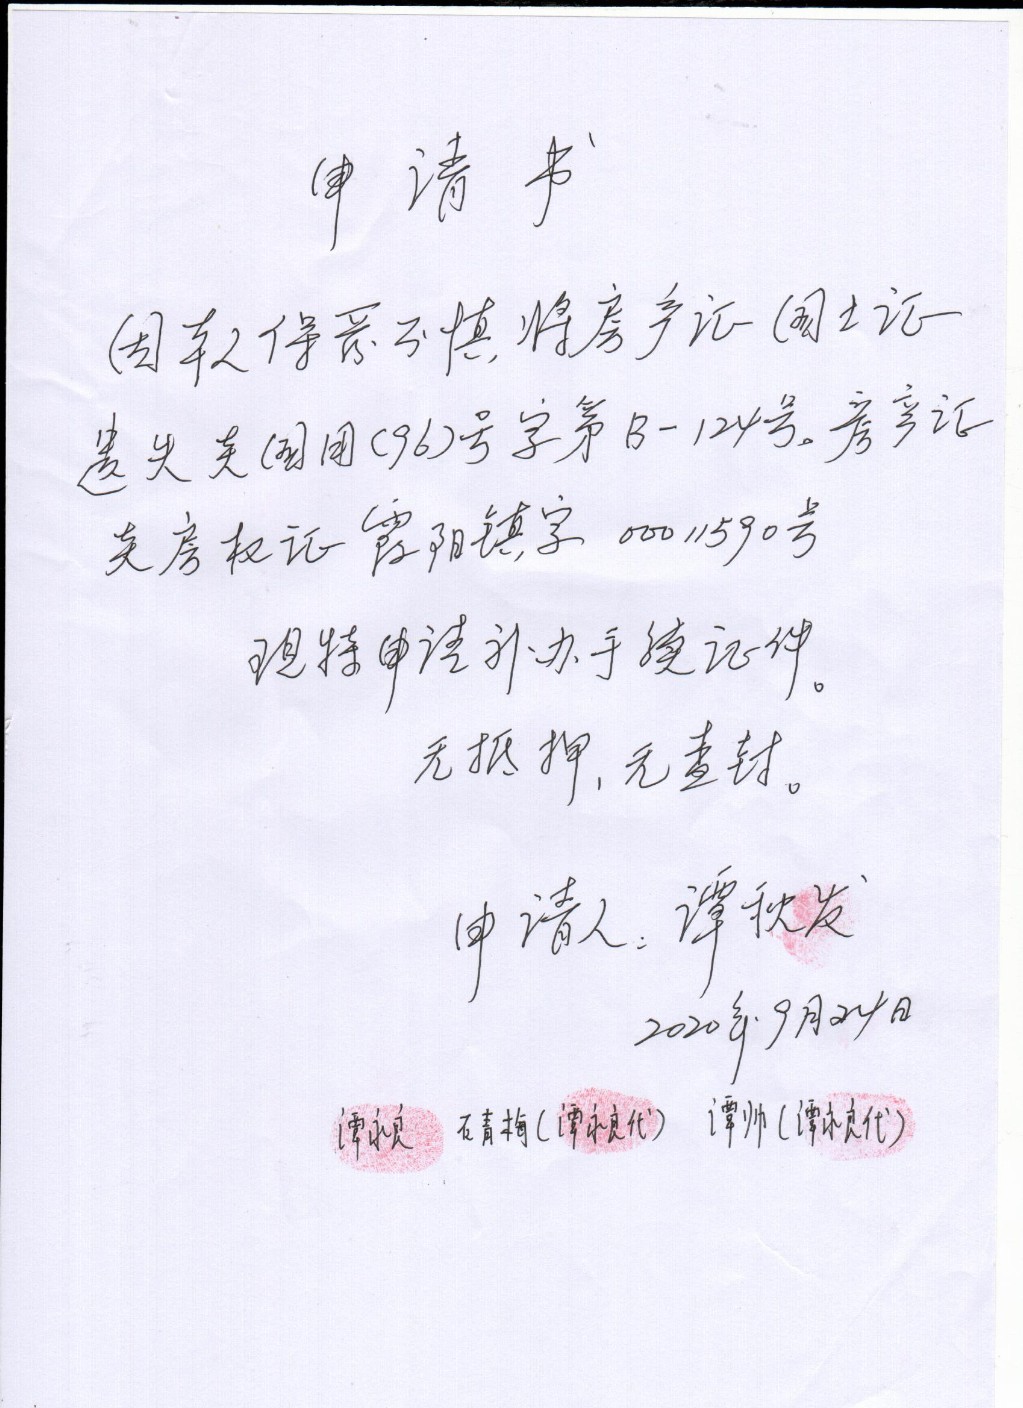 申请书
因本人保管不慎,将房产证 国土证
遗失炎国用(96)号字第B-124号。房产证
炎房权证霞阳镇字 00011590号
现特申请补办手续证件。
无抵押,无查封。
申请人:谭秋发
2020年9月24日
谭永良 石青梅(谭永良代) 谭帅(谭永良代)